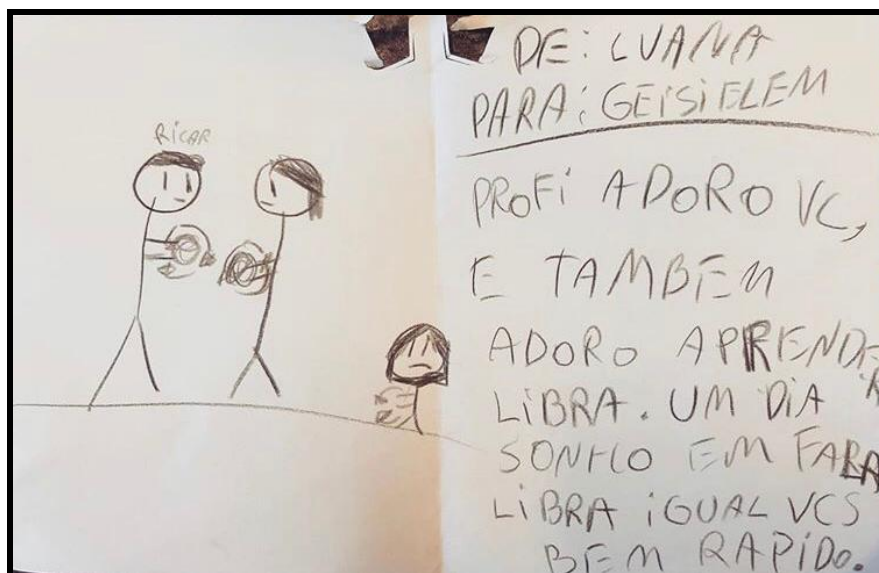 RICAR
DE: LUANA
PARA: GEISIELEM
PROFI ADORO VC,
E TAMBEM
ADORO APRENDER
LIBRA. UM DIA
SONHO EM FALAR
LIBRA IGUAL VCS
BEM RAPIDO.